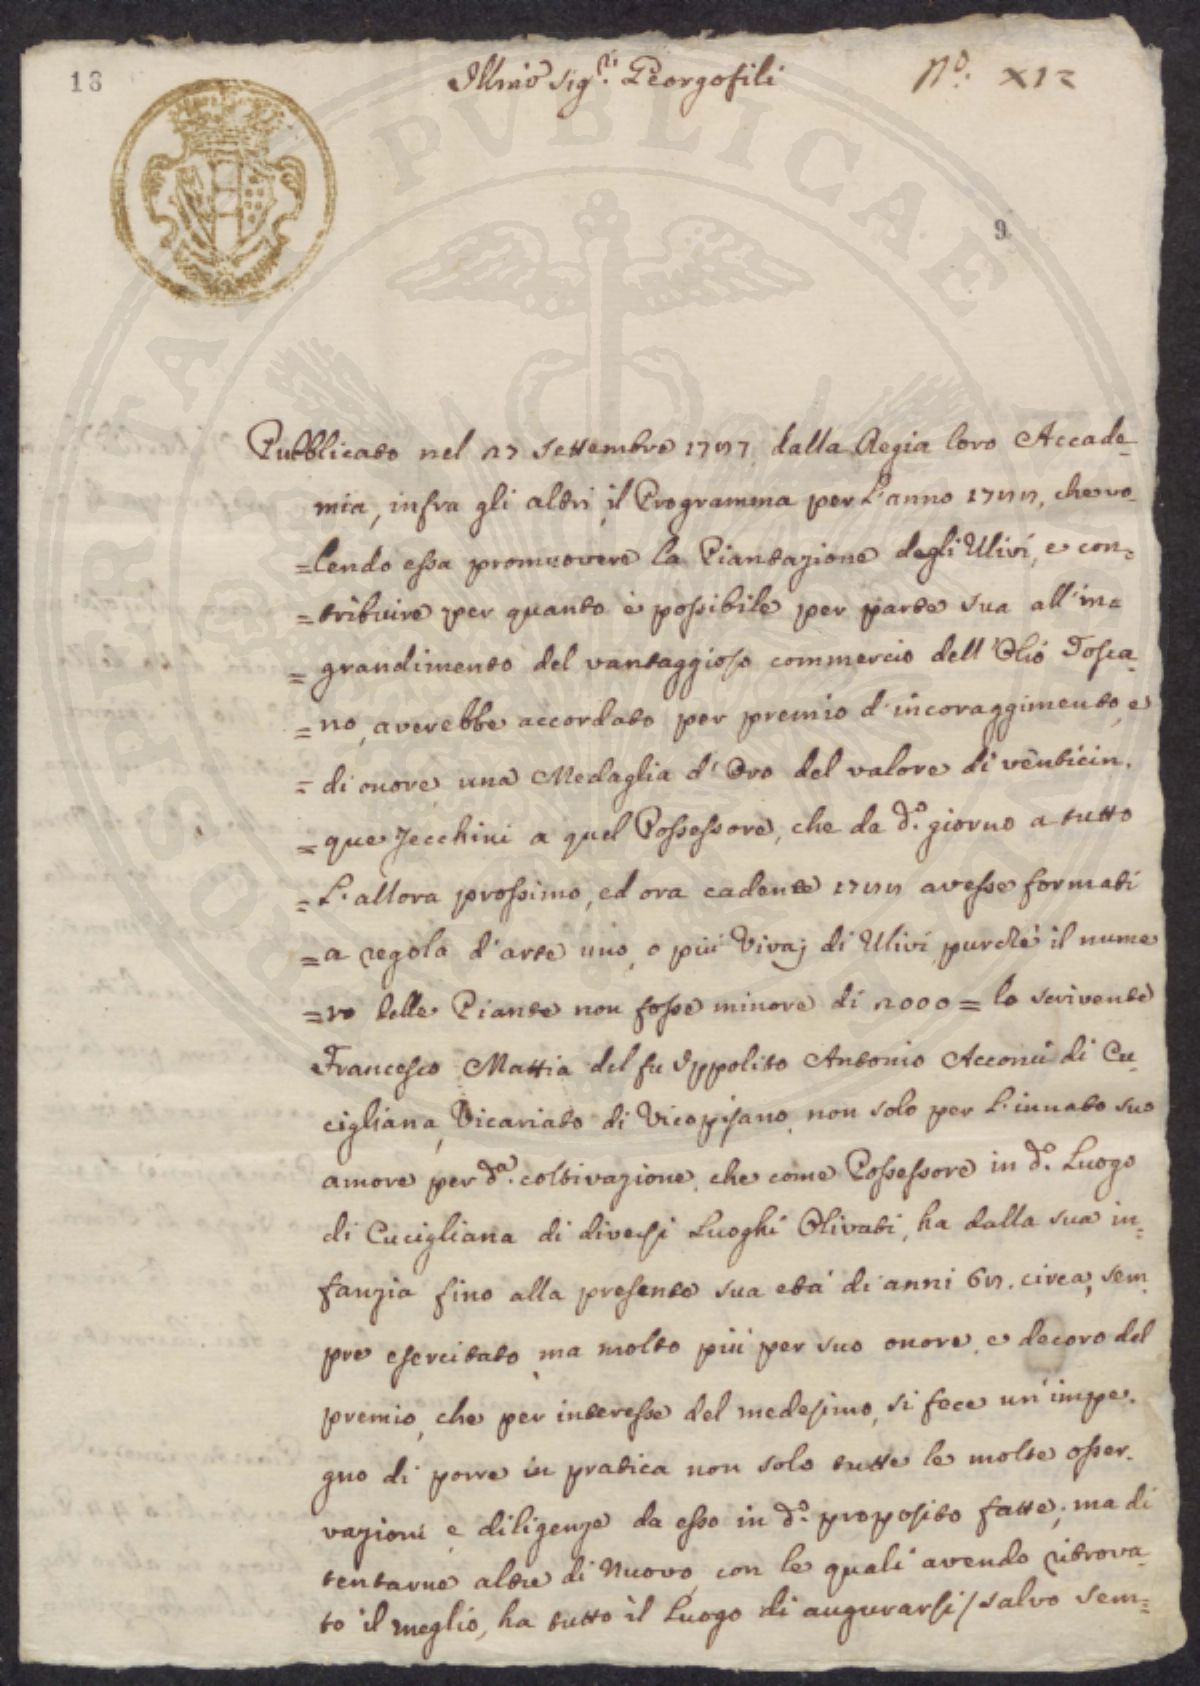 13
Illmi Sig.ri Georgofili
N.o XII
9.
Pubblicato nel 27 Settembre 1797 dalla Regia loro Accade-
mia, infra gli altri, il Programma per l'anno 1799, che vo-
=lendo essa promuovere la Piantazione degli Ulivi, e con=
=tribuire per quanto è possibile per parte sua all'in=
=grandimento del vantaggioso commercio dell'Olio Tosca=
=no, averebbe accordato per premio d'incoraggimento, e
= di onore una Medaglia d'Oro del valore di venticin.
=que Zecchini a quel Possessore, che da d.o giorno a tutto
=L'allora prossimo, ed ora cadente 1799 avesse formati
=a regola d'arte uno, o più Vivaj di Ulivi purchè il nume
=ro delle Piante non fosse minore di 2000 = lo scrivente
Francesco Mattia del fu Ippolito Antonio Acconci di Cu-
cigliana, Vicariato di Vicopisano, non solo per l'innato suo
amore per d.a coltivazione, che come Possessore in d.o Luogo
di Cucigliana di diversi Luoghi Olivati, ha dalla sua in=
fanzia fino alla presente sua età di anni 69. circa, sem
pre esercitato, ma molto più per suo onore, e decoro del
premio, che per interesse del medesimo, si fece un'impe.
gno di porre in pratica non solo tutte le molte osser.
vazioni e diligenze da esso in d.o proposito fatte, ma di
tentarne altre di Nuovo, con le quali avendo ritrova-
to il meglio, ha tutto il Luogo di augurarsi / salvo sem=
PROSPERITATI PVBLICAE AVGENDAE